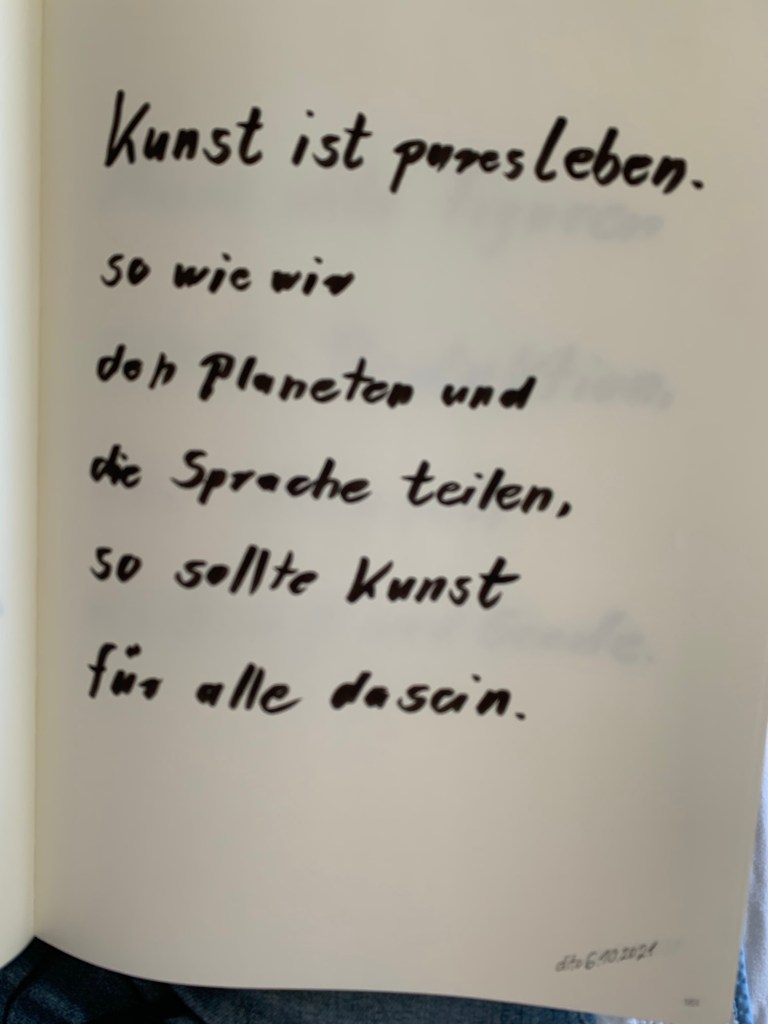 Kunst ist pures leben.
so wie wir
den Planeten und
die Sprache teilen,
so sollte Kunst
für alle dasein.
6.10.2021